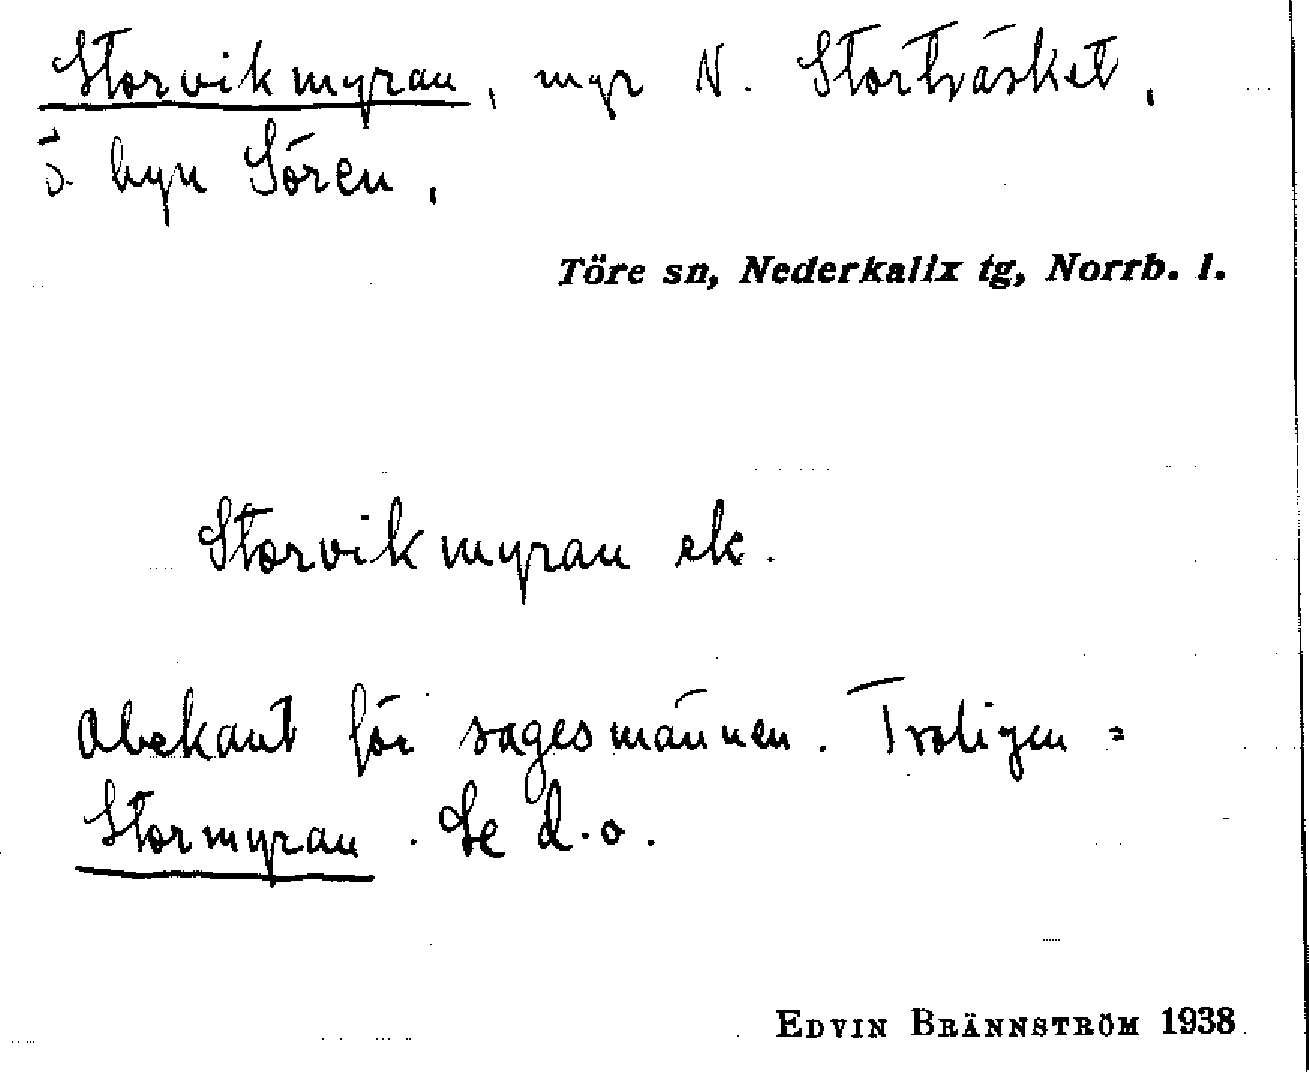 Storvikmyran, myr N. Storträsket,
ö. byn Sören,
Töre sn, Nederkalix tg, Norrb. l.
Storvikmyran ek.
Obekant för sagesmännen. Troligen =
Stormyran. Se d.o.
EDVIN BRÄNNSTRÖM 1938